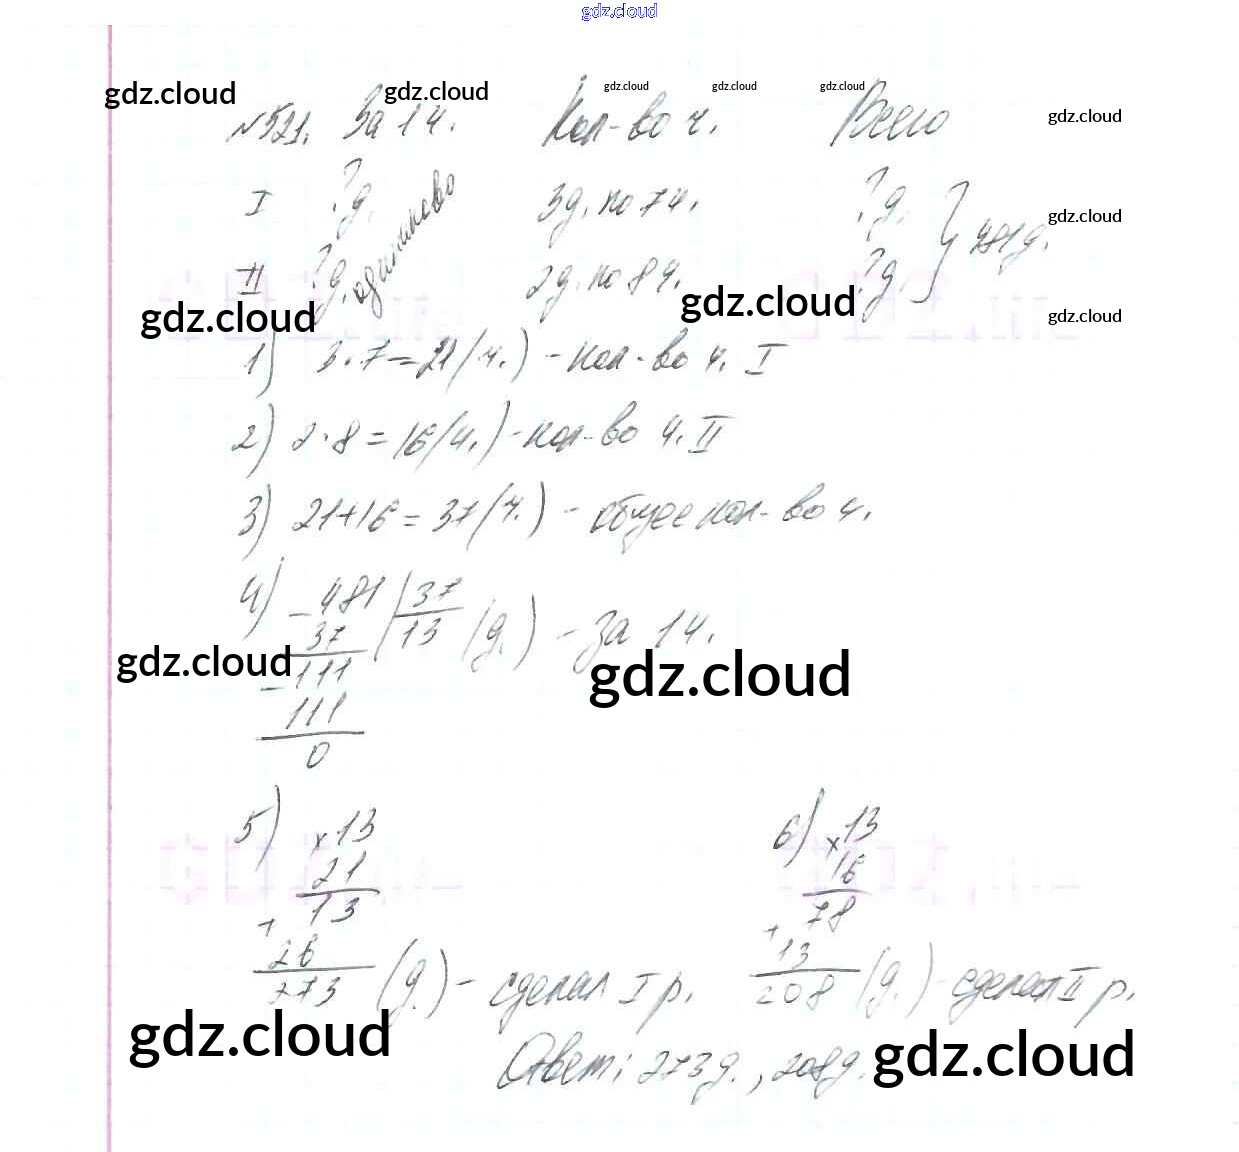 gdz.cloud
gdz.cloud gdz.cloud gdz.cloud gdz.cloud gdz.cloud
№521. За 1ч. Кол-во ч. Всего gdz.cloud
I ?д. одинаково 3д. по 7ч. ?д. } 481д. gdz.cloud
II ?д. 2д. по 8ч. ?д.
gdz.cloud gdz.cloud gdz.cloud
1) 3·7=21(ч.) - кол-во ч. I
2) 2·8=16(ч.) - кол-во ч. II
3) 21+16=37(ч.) - общее кол-во ч.
4) -481 | 37
37 13 (д.) - за 1ч.
gdz.cloud -111 gdz.cloud
111
0
5) ×13 6) ×13
gdz.cloud 21 16
+ 13 + 78
26 13
273 (д.) - сделал I р. 208 (д.) - сделал II р.
gdz.cloud Ответ: 273д., 208д. gdz.cloud